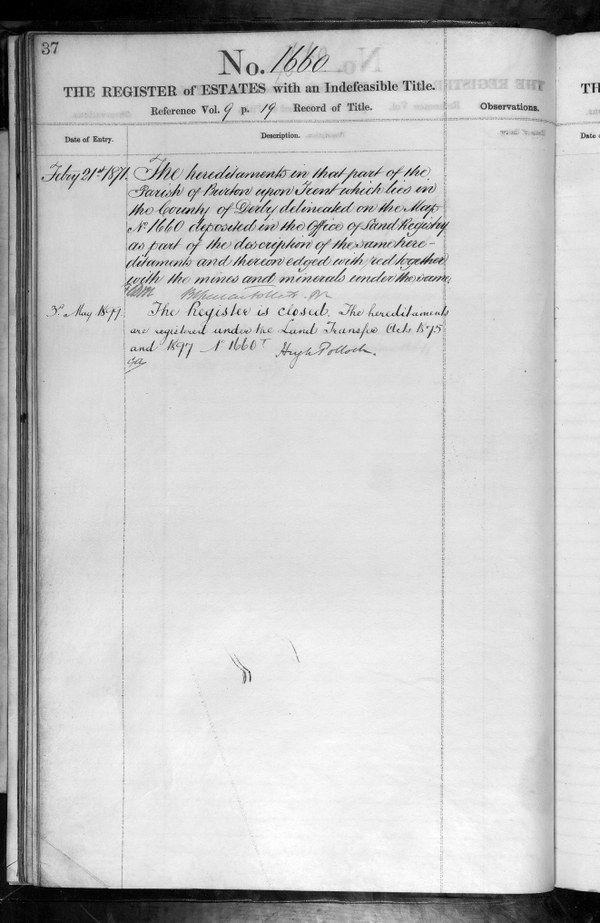 37
No. 1660
THE REGISTER of ESTATES with an Indefeasible Title.
Reference Vol. 9 p. 19 Record of Title.
Observations.
Date of Entry.
Description.
Febry 21st 1871.
The hereditaments in that part of the
Parish of Burton upon Trent which lies in
the County of Derby delineated on the Map
No 1660 deposited in the Office of Land Registry
as part of the description of the same here-
ditaments and thereon edged with red together
with the mines and minerals under the same.
3rd May 1899.
The Register is closed. The hereditaments
are registered under the Land Transfer Acts 1875
and 1897 No 1660T
Hugh Pollock.
TH
Date o